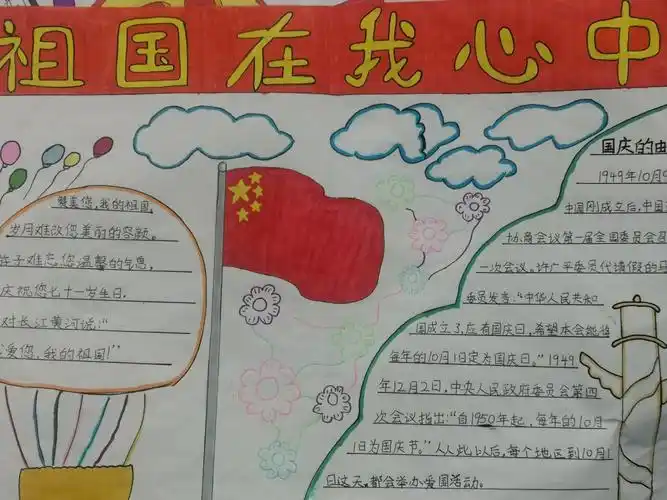 祖国在我心中
赞美您,我的祖国
岁月难改您美丽的容颜。
许子难忘您温馨的气息,
庆祝您七十一岁生日.
对长江黄河说:“
爱您,我的祖国!”
国庆的由
1949年10月9
中国刚成立后,中国
协商会议第一届全国委员会召
一次会议。许广平委员代请假的马
委员发言:“中华人民共和
国成立了,应有国庆日,希望本会能将
每年的10月1日定为国庆日。”1949
年12月2日,中央人民政府委员会第四
次会议指出:“自1950年起,每年的10月
1日为国庆节。”人人此以后,每个地区到10月1
日这天,都会举办爱国活动。